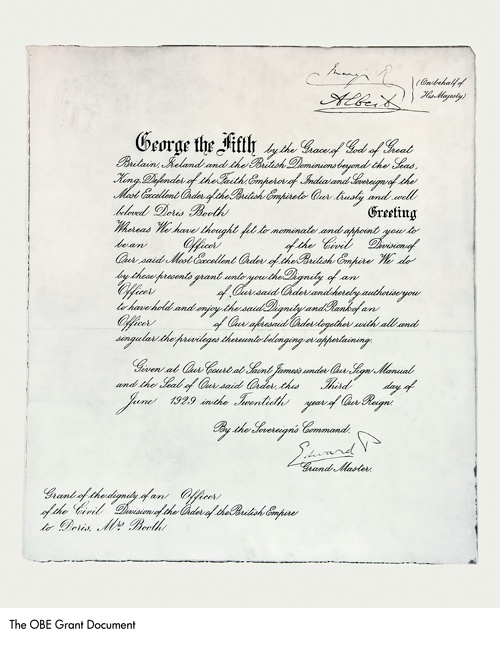 Mary R
Albert
(On behalf of
His Majesty)
George the Fifth by the Grace of God of Great
Britain, Ireland and the British Dominions beyond the Seas,
King, Defender of the Faith, Emperor of India and Sovereign of the
Most Excellent Order of the British Empire to Our trusty and well
beloved Doris Booth Greeting
Whereas We have thought fit to nominate and appoint you to
be an Officer of the Civil Division of
Our said Most Excellent Order of the British Empire We do
by these presents grant unto you the Dignity of an
Officer of Our said Order and hereby authorise you
to have hold and enjoy the said Dignity and Rank of an
Officer of Our aforesaid Order together with all and
singular the privileges thereunto belonging or appertaining.
Given at Our Court at Saint James's under Our Sign Manual
and the Seal of Our said Order, this Third day of
June 1929 in the Twentieth year of Our Reign.
By the Sovereign's Command.
Edward P
Grand Master.
Grant of the dignity of an Officer
of the Civil Division of the Order of the British Empire
to Doris, Mrs Booth
The OBE Grant Document